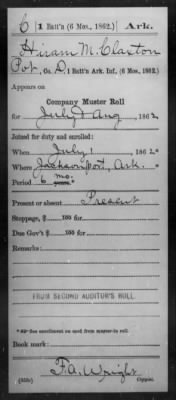 6 | 1 Batt'n (6 Mos., 1862.) | Ark.
Hiram M. Claxton
Pvt, Co. D, 1 Batt'n Ark. Inf. (6 Mos., 1862.)
Appears on
Company Muster Roll
for July & Aug, 1862.
Joined for duty and enrolled:
When July 1, 1862.*
Where Jacksonport, Ark.
Period 6 mo. years.*
Present or absent Present
Stoppage, $ 100 for
Due Gov't $ 100 for
Remarks:
FROM SECOND AUDITOR'S ROLL.
* See enrollment on card from muster-in roll.
Book mark:
F.A. Wright
Copyist.